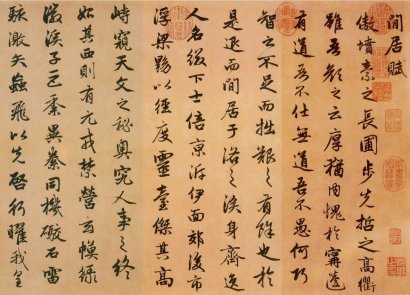 閒居賦
傲墳素之長圃步先哲之高衢
雖吾顏之云厚猶内愧於甯蘧
有道吾不仕無道吾不愚何巧
智之不足而拙艱之有餘也於
是退而閒居于洛之涘身齊逸
人名綴下士倍京泝伊面郊後市
浮梁黝以徑度靈臺傑其高
峙窺天文之秘奥究人事之終
始其西則有元戎禁營玄幙緑
徽溪子巨黍異絭同機礮石雷
駭激矢蝱飛以先啓行曜我皇